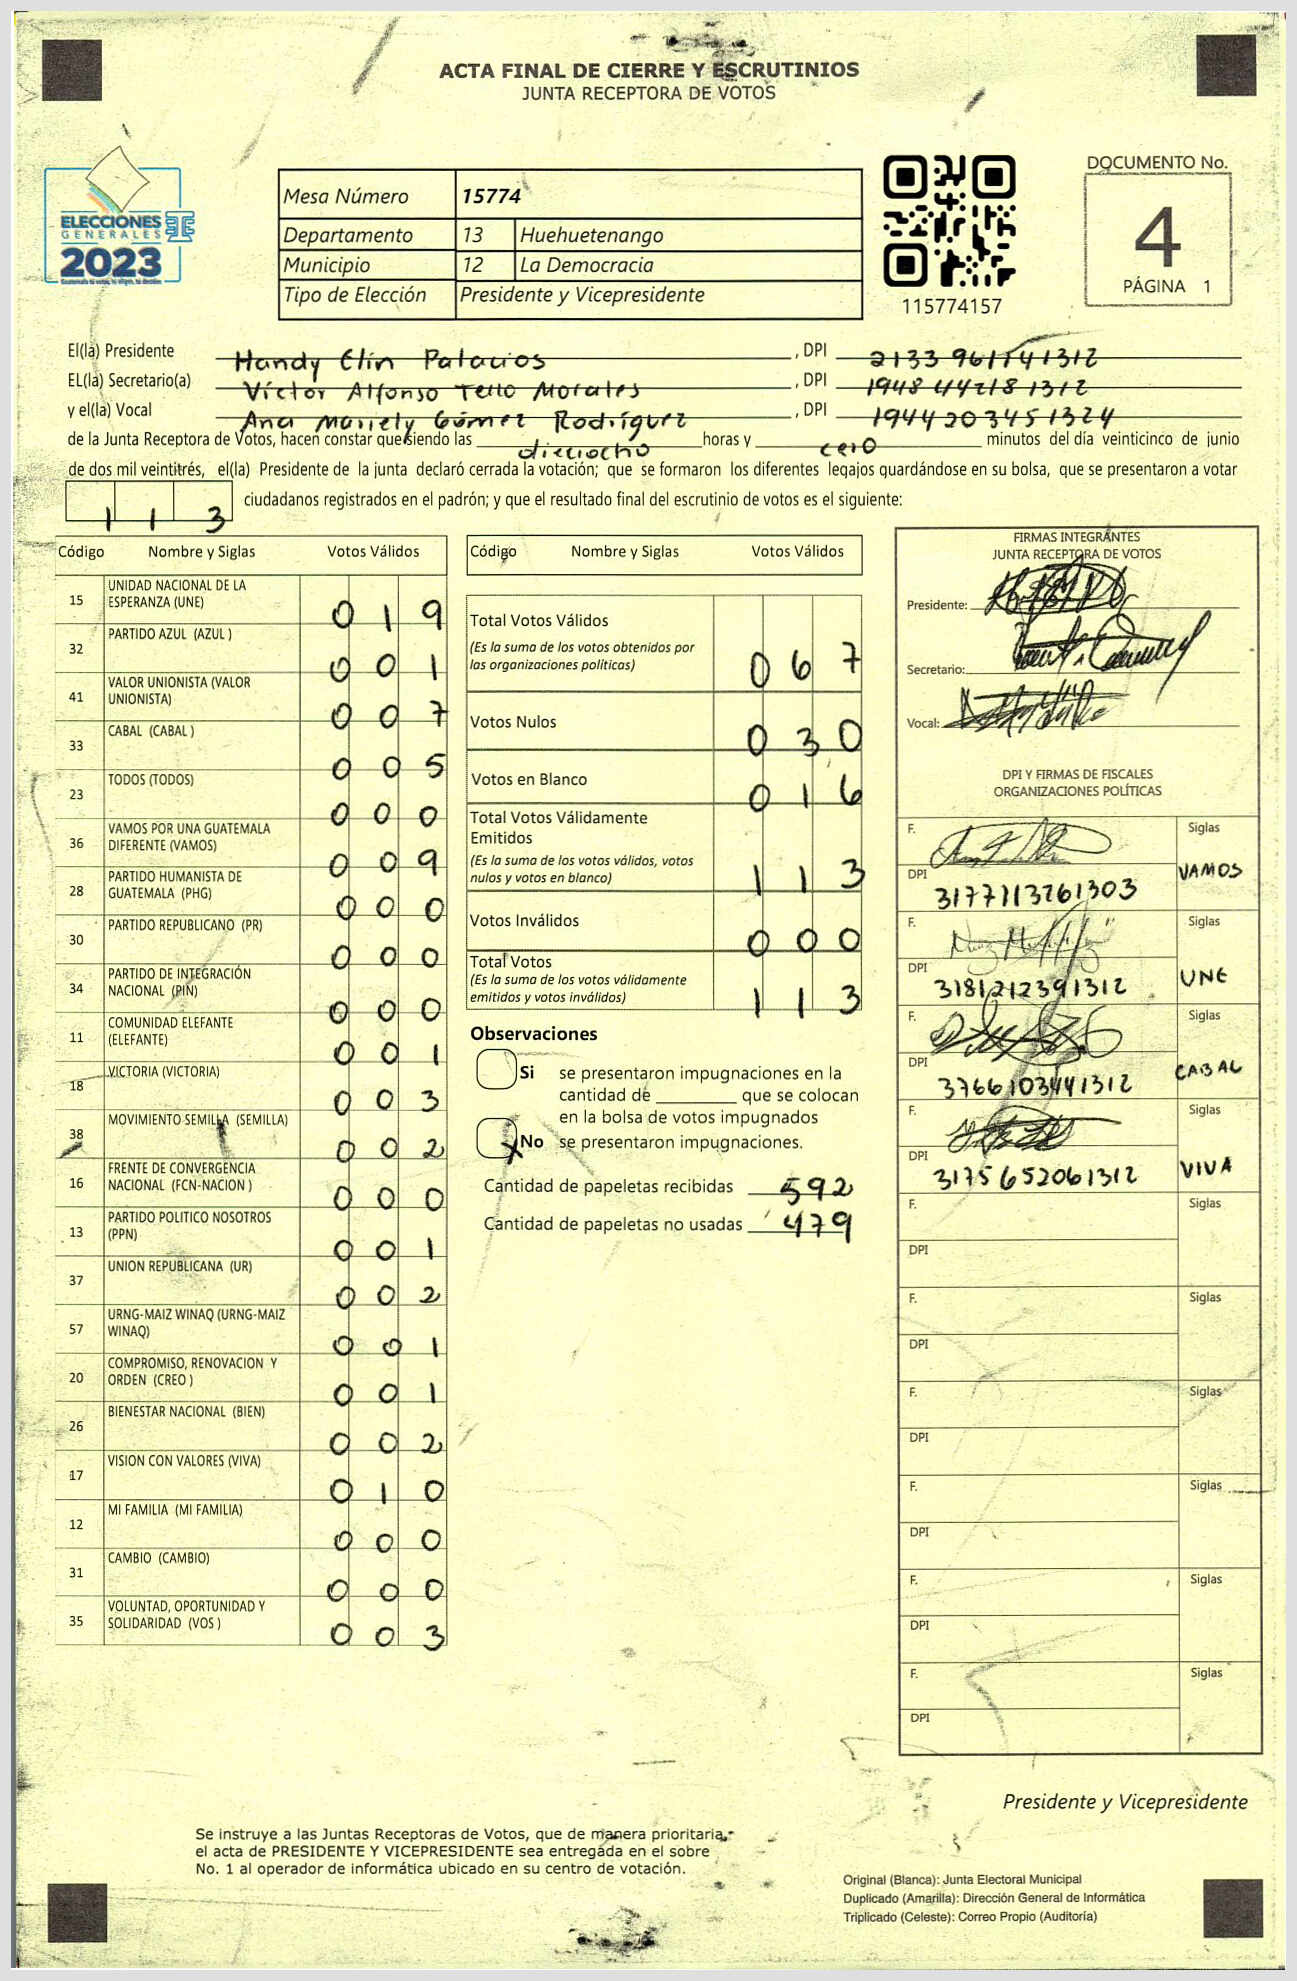 ACTA FINAL DE CIERRE Y ESCRUTINIOS
JUNTA RECEPTORA DE VOTOS
ELECCIONES
GENERALES
2023
Mesa Número 15774
Departamento 13 Huehuetenango
Municipio 12 La Democracia
Tipo de Elección Presidente y Vicepresidente
115774157
DOCUMENTO No.
4
PÁGINA 1
El(la) Presidente Handy Elin Palacios , DPI
EL(la) Secretario(a) Víctor Alfonso Tello Morales , DPI 1948 44218 1312
y el(la) Vocal Ana Mariely Gómez Rodríguez , DPI 1944 20345 1324
de la Junta Receptora de Votos, hacen constar que siendo las dieciocho horas y cero minutos del día veinticinco de junio
de dos mil veintitrés, el(la) Presidente de la junta declaró cerrada la votación; que se formaron los diferentes legajos guardándose en su bolsa, que se presentaron a votar
113 ciudadanos registrados en el padrón; y que el resultado final del escrutinio de votos es el siguiente:
Código Nombre y Siglas Votos Válidos
15 UNIDAD NACIONAL DE LA ESPERANZA (UNE) 019
32 PARTIDO AZUL (AZUL ) 001
41 VALOR UNIONISTA (VALOR UNIONISTA) 007
33 CABAL (CABAL ) 005
23 TODOS (TODOS) 000
36 VAMOS POR UNA GUATEMALA DIFERENTE (VAMOS) 009
28 PARTIDO HUMANISTA DE GUATEMALA (PHG) 000
30 PARTIDO REPUBLICANO (PR) 000
34 PARTIDO DE INTEGRACIÓN NACIONAL (PIN) 000
11 COMUNIDAD ELEFANTE (ELEFANTE) 001
18 VICTORIA (VICTORIA) 003
38 MOVIMIENTO SEMILLA (SEMILLA) 002
16 FRENTE DE CONVERGENCIA NACIONAL (FCN-NACION ) 000
13 PARTIDO POLITICO NOSOTROS (PPN) 001
37 UNION REPUBLICANA (UR) 002
57 URNG-MAIZ WINAQ (URNG-MAIZ WINAQ) 001
20 COMPROMISO, RENOVACION Y ORDEN (CREO ) 001
26 BIENESTAR NACIONAL (BIEN) 002
17 VISION CON VALORES (VIVA) 010
12 MI FAMILIA (MI FAMILIA) 000
31 CAMBIO (CAMBIO) 000
35 VOLUNTAD, OPORTUNIDAD Y SOLIDARIDAD (VOS ) 003
Código Nombre y Siglas Votos Válidos
Total Votos Válidos 067
(Es la suma de los votos obtenidos por
las organizaciones políticas)
Votos Nulos 030
Votos en Blanco 016
Total Votos Válidamente
Emitidos
(Es la suma de los votos válidos, votos
nulos y votos en blanco) 113
Votos Inválidos 000
Total Votos
(Es la suma de los votos válidamente
emitidos y votos inválidos) 113
Observaciones
Si se presentaron impugnaciones en la
cantidad de ________ que se colocan
en la bolsa de votos impugnados
X No se presentaron impugnaciones.
Cantidad de papeletas recibidas 592
Cantidad de papeletas no usadas 479
FIRMAS INTEGRANTES
JUNTA RECEPTORA DE VOTOS
Presidente:
Secretario:
Vocal:
DPI Y FIRMAS DE FISCALES
ORGANIZACIONES POLÍTICAS
F. Siglas
VAMOS
DPI 3177113261303
F. Siglas
UNE
DPI 3181212391312
F. Siglas
CABAL
DPI 3766103441312
F. Siglas
VIVA
DPI 3175652061312
F. Siglas
DPI
F. Siglas
DPI
F. Siglas
DPI
F. Siglas
DPI
F. Siglas
DPI
F. Siglas
DPI
Presidente y Vicepresidente
Se instruye a las Juntas Receptoras de Votos, que de manera prioritaria,
el acta de PRESIDENTE Y VICEPRESIDENTE sea entregada en el sobre
No. 1 al operador de informática ubicado en su centro de votación.
Original (Blanca): Junta Electoral Municipal
Duplicado (Amarilla): Dirección General de Informática
Triplicado (Celeste): Correo Propio (Auditoría)